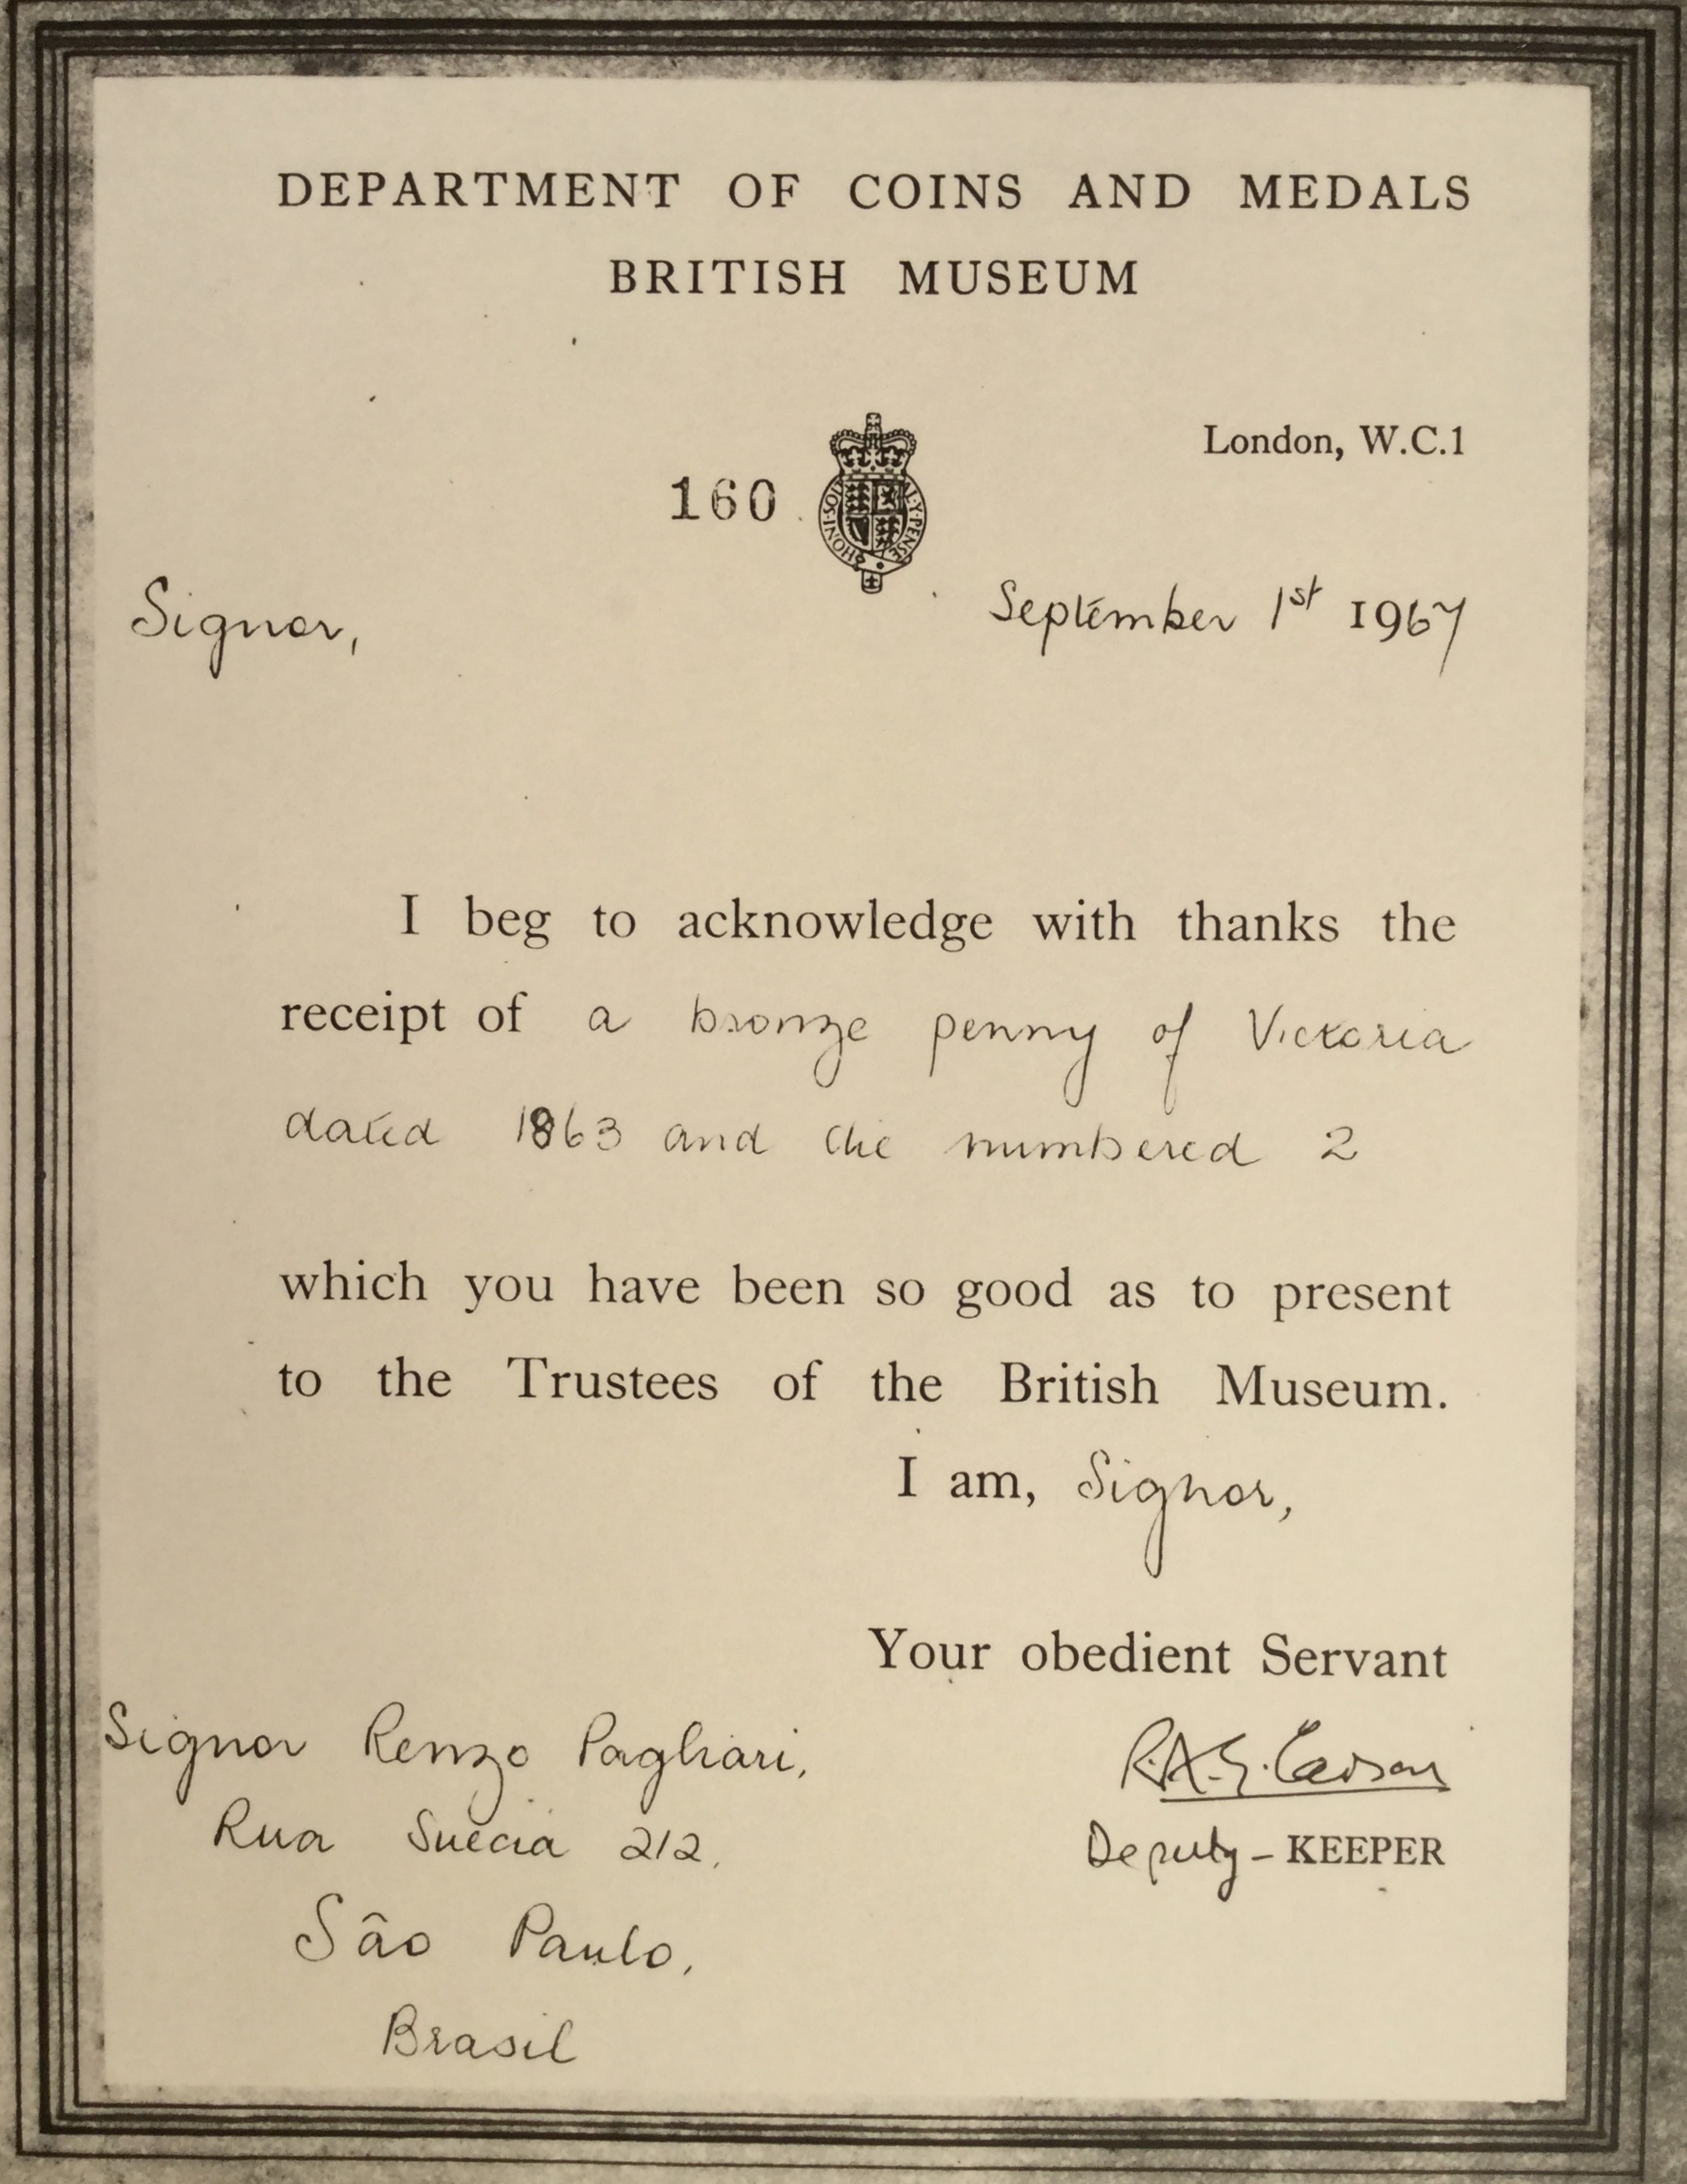 DEPARTMENT OF COINS AND MEDALS
BRITISH MUSEUM
London, W.C.1
160
HONI·SOIT AL·Y·PENSE
September 1st 1967
Signor,
I beg to acknowledge with thanks the
receipt of a bronze penny of Victoria
dated 1863 and die numbered 2
which you have been so good as to present
to the Trustees of the British Museum.
I am, Signor,
Your obedient Servant
R.A.G. Carson
Deputy - KEEPER
Signor Renzo Pagliari,
Rua Suécia 212,
Sâo Paulo,
Brasil